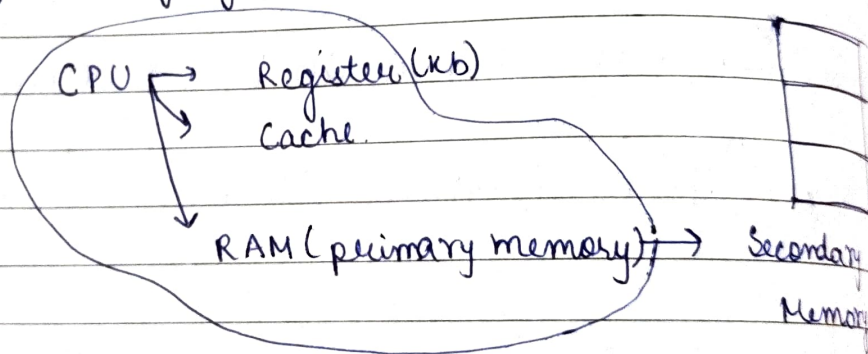 CPU → Register (Kb)
Cache.
RAM (primary memory) → Secondary
Memor